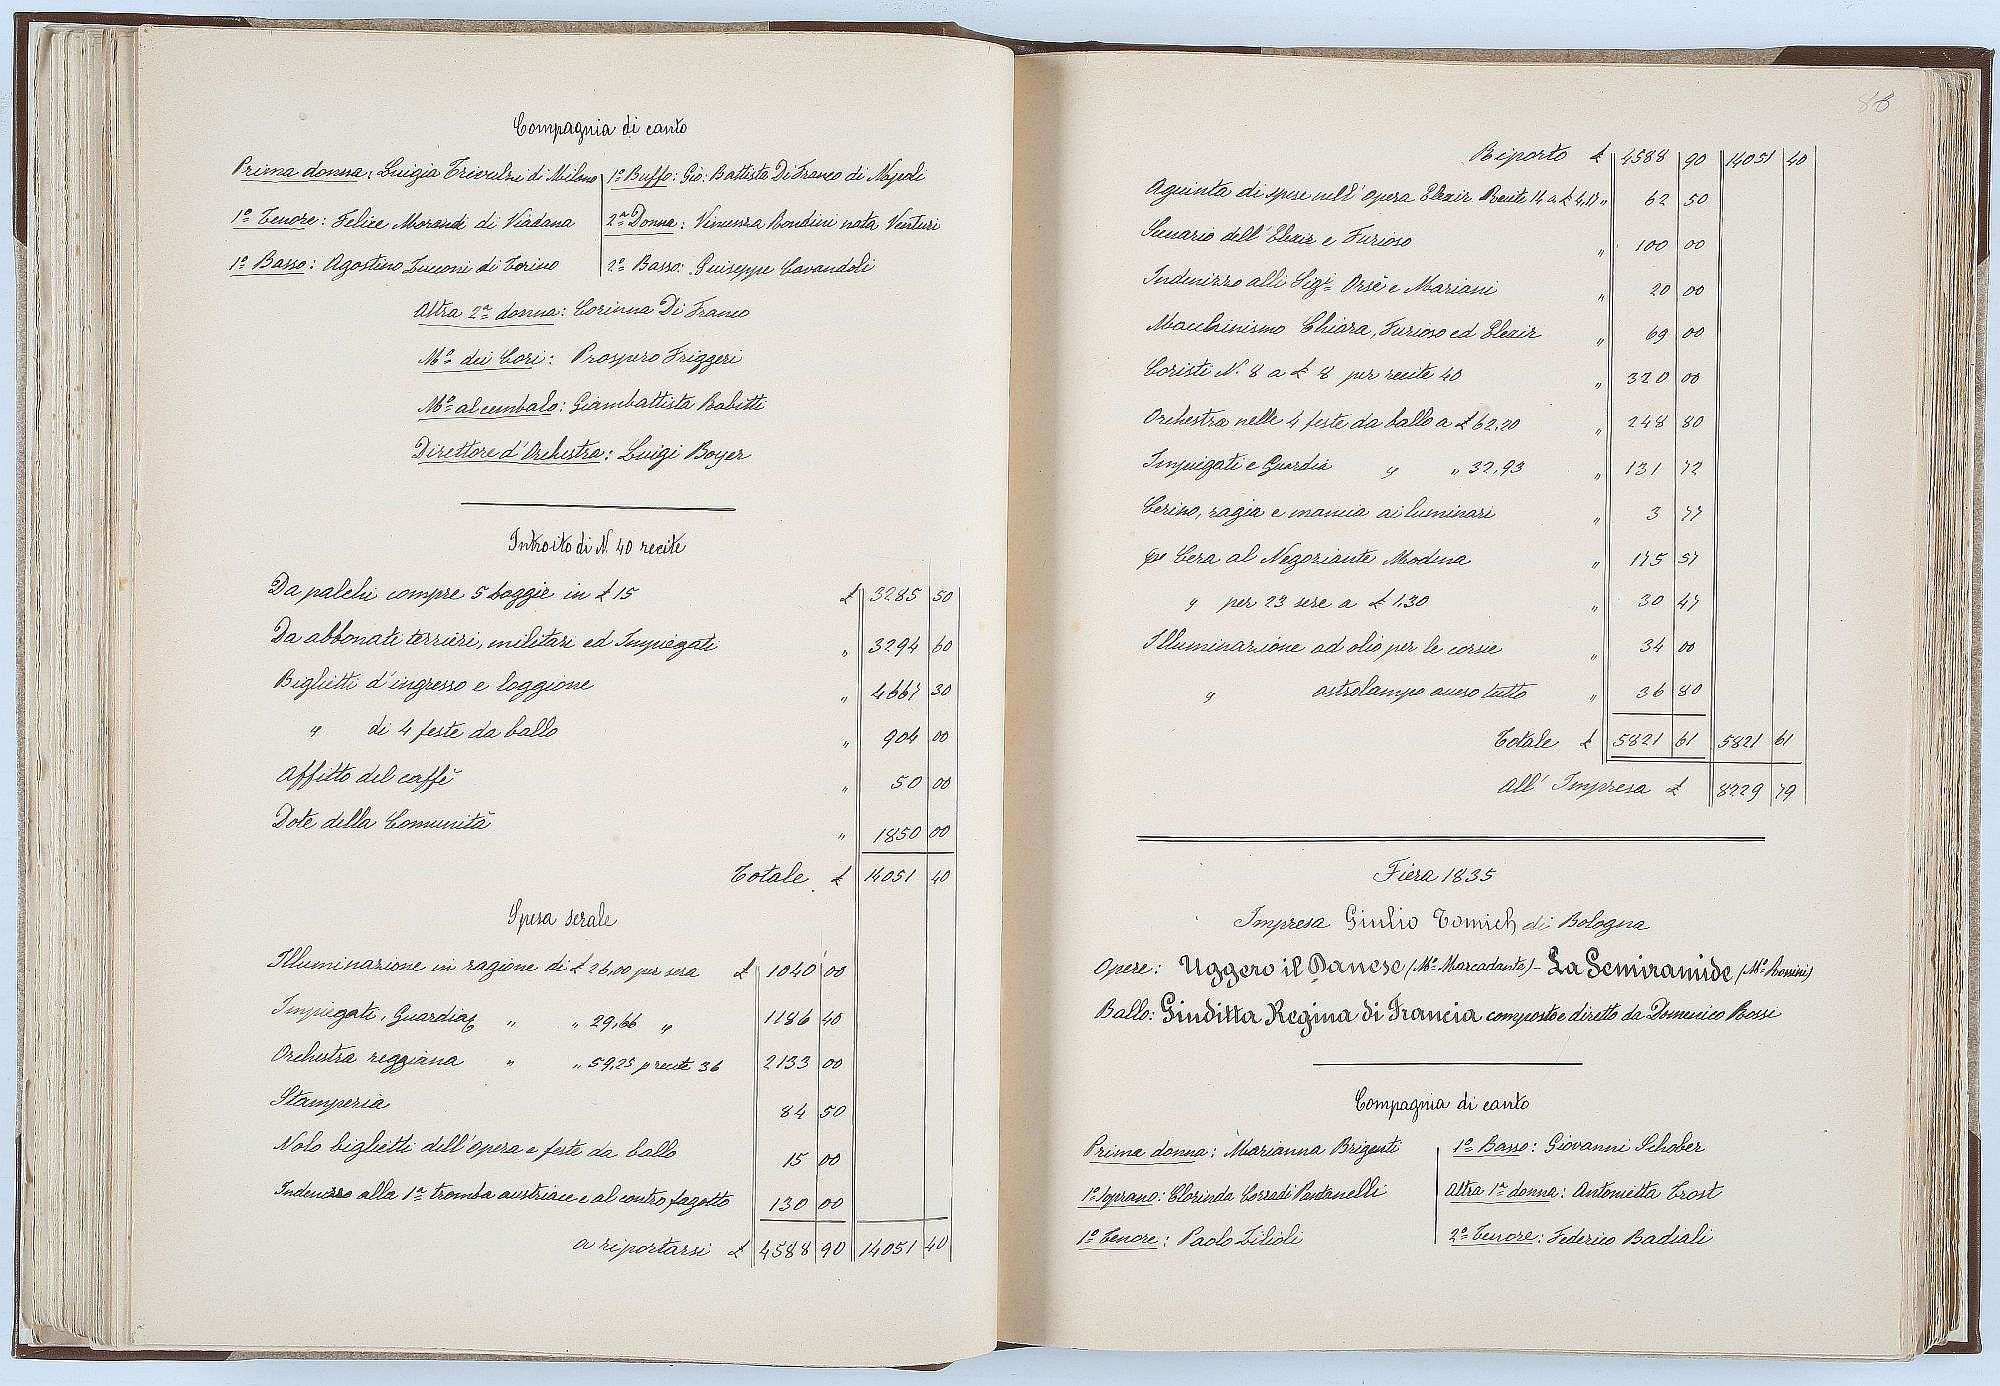 Compagnia di canto
Prima donna: Luigia Trivulzi di Milano
1º Tenore: Felice Morandi di Viadana
1º Basso: Agostino Zucconi di Torino
1º Buffo: Gio: Battista Di Franco di Napoli
2ª Donna: Vincenza Rondini nata Venturi
2º Basso: Guiseppe Cavandoli
Altra 2ª donna: Corinna Di Franco
Mº dei Cori: Prospero Friggeri
Mº al cembalo: Giambattista Rabitti
Direttore d'Orchestra: Luigi Boyer
Introito di N. 40 recite
Da palchi compre 5 loggie in £ 15 £ 3285 50
Da abbonati terrieri, militari ed Impiegati " 3294 60
Biglietti d'ingresso e loggione " 4667 30
" di 4 feste da ballo " 904 00
Affitto del caffè " 50 00
Dote della Comunità " 1850 00
Totale £ 14051 40
Spesa serale
Illuminazione in ragione di £ 26,00 per sera £ 1040 00
Impiegati, Guardia " " 29,66 " 1186 40
Orchestra reggiana " " 59,25 p recite 36 2133 00
Stamperia 84 50
Nolo biglietti dell'opera e feste da ballo 15 00
Indenizzo alla 1ª tromba austriaca e al contro fagotto 130 00
a riportarsi £ 4588 90 14051 40
88
Riporto £ 4588 90 14051 40
Agiunta di spese nell'opera Elexir Recite 14 a £ 4,17 " 62 50
Scenario dell'Elexir e Furioso " 100 00
Indenizzo alli Sigri Orsè e Mariani " 20 00
Macchinismo Chiara, Furioso ed Elexir " 69 00
Coristi N. 8 a £ 8 per recite 40 " 320 00
Orchestra nelle 4 feste da ballo a £ 62,20 " 248 80
Impiegati e Guardia " " 32,93 " 131 72
Cerino, ragia e mancia ai luminari " 3 77
Cera al Negoziante Modena " 175 57
" per 23 sere a £ 1.30 " 30 47
Illuminazione ad olio per le corsie " 34 00
" astrolampo acceso tutto " 36 80
Totale £ 5821 61 5821 61
All'Impresa £ 8229 79
Fiera 1835
Impresa Giulio Tomich di Bologna
Opere: Uggero il Danese (Mº Marcadante) - La Semiramide (Mº Rossini)
Ballo: Giuditta Regina di Francia composto e diretto da Domenico Rossi
Compagnia di canto
Prima donna: Marianna Brigenti
1º Soprano: Clorinda Corradi Pantanelli
1º Tenore: Paolo Zilioli
1º Basso: Giovanni Schober
Altra 1ª donna: Antonietta Trost
2º Tenore: Federico Badiali